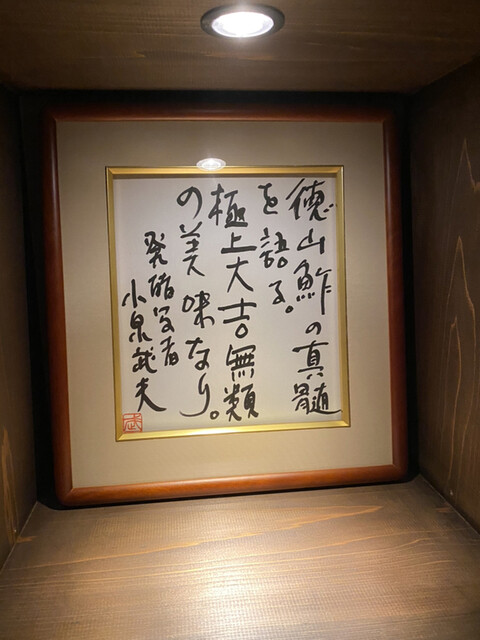 徳山鮓の真髄
を語る。
極上大吉無類
の美味なり。
発酵学者
小泉武夫
武